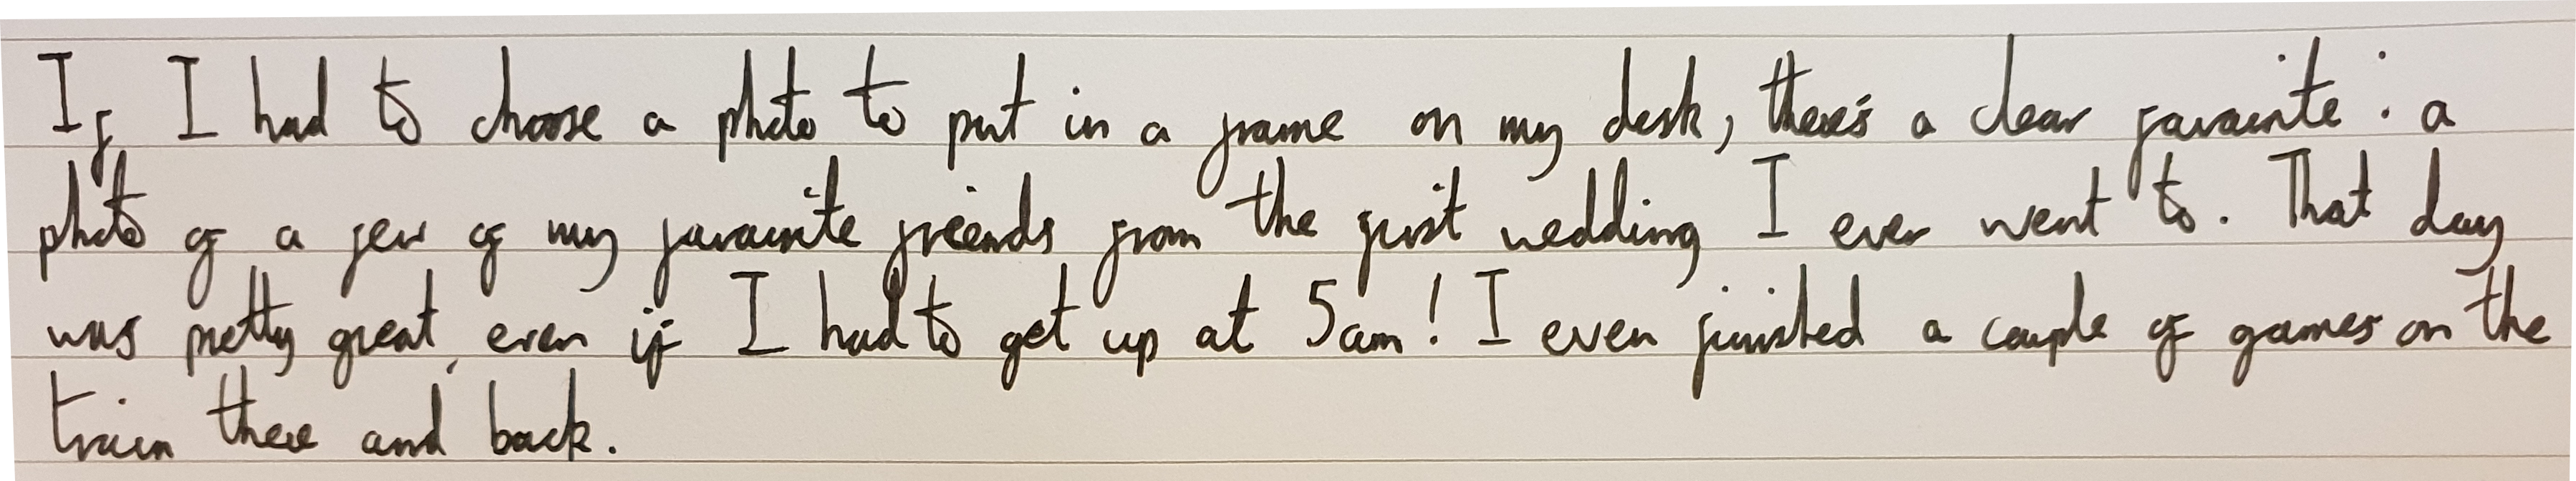 If I had to choose a photo to put in a frame on my desk, there's a clear favourite: a
photo of a few of my favourite friends from the first wedding I ever went to. That day
was pretty great, even if I had to get up at 5am! I even finished a couple of games on the
train there and back.